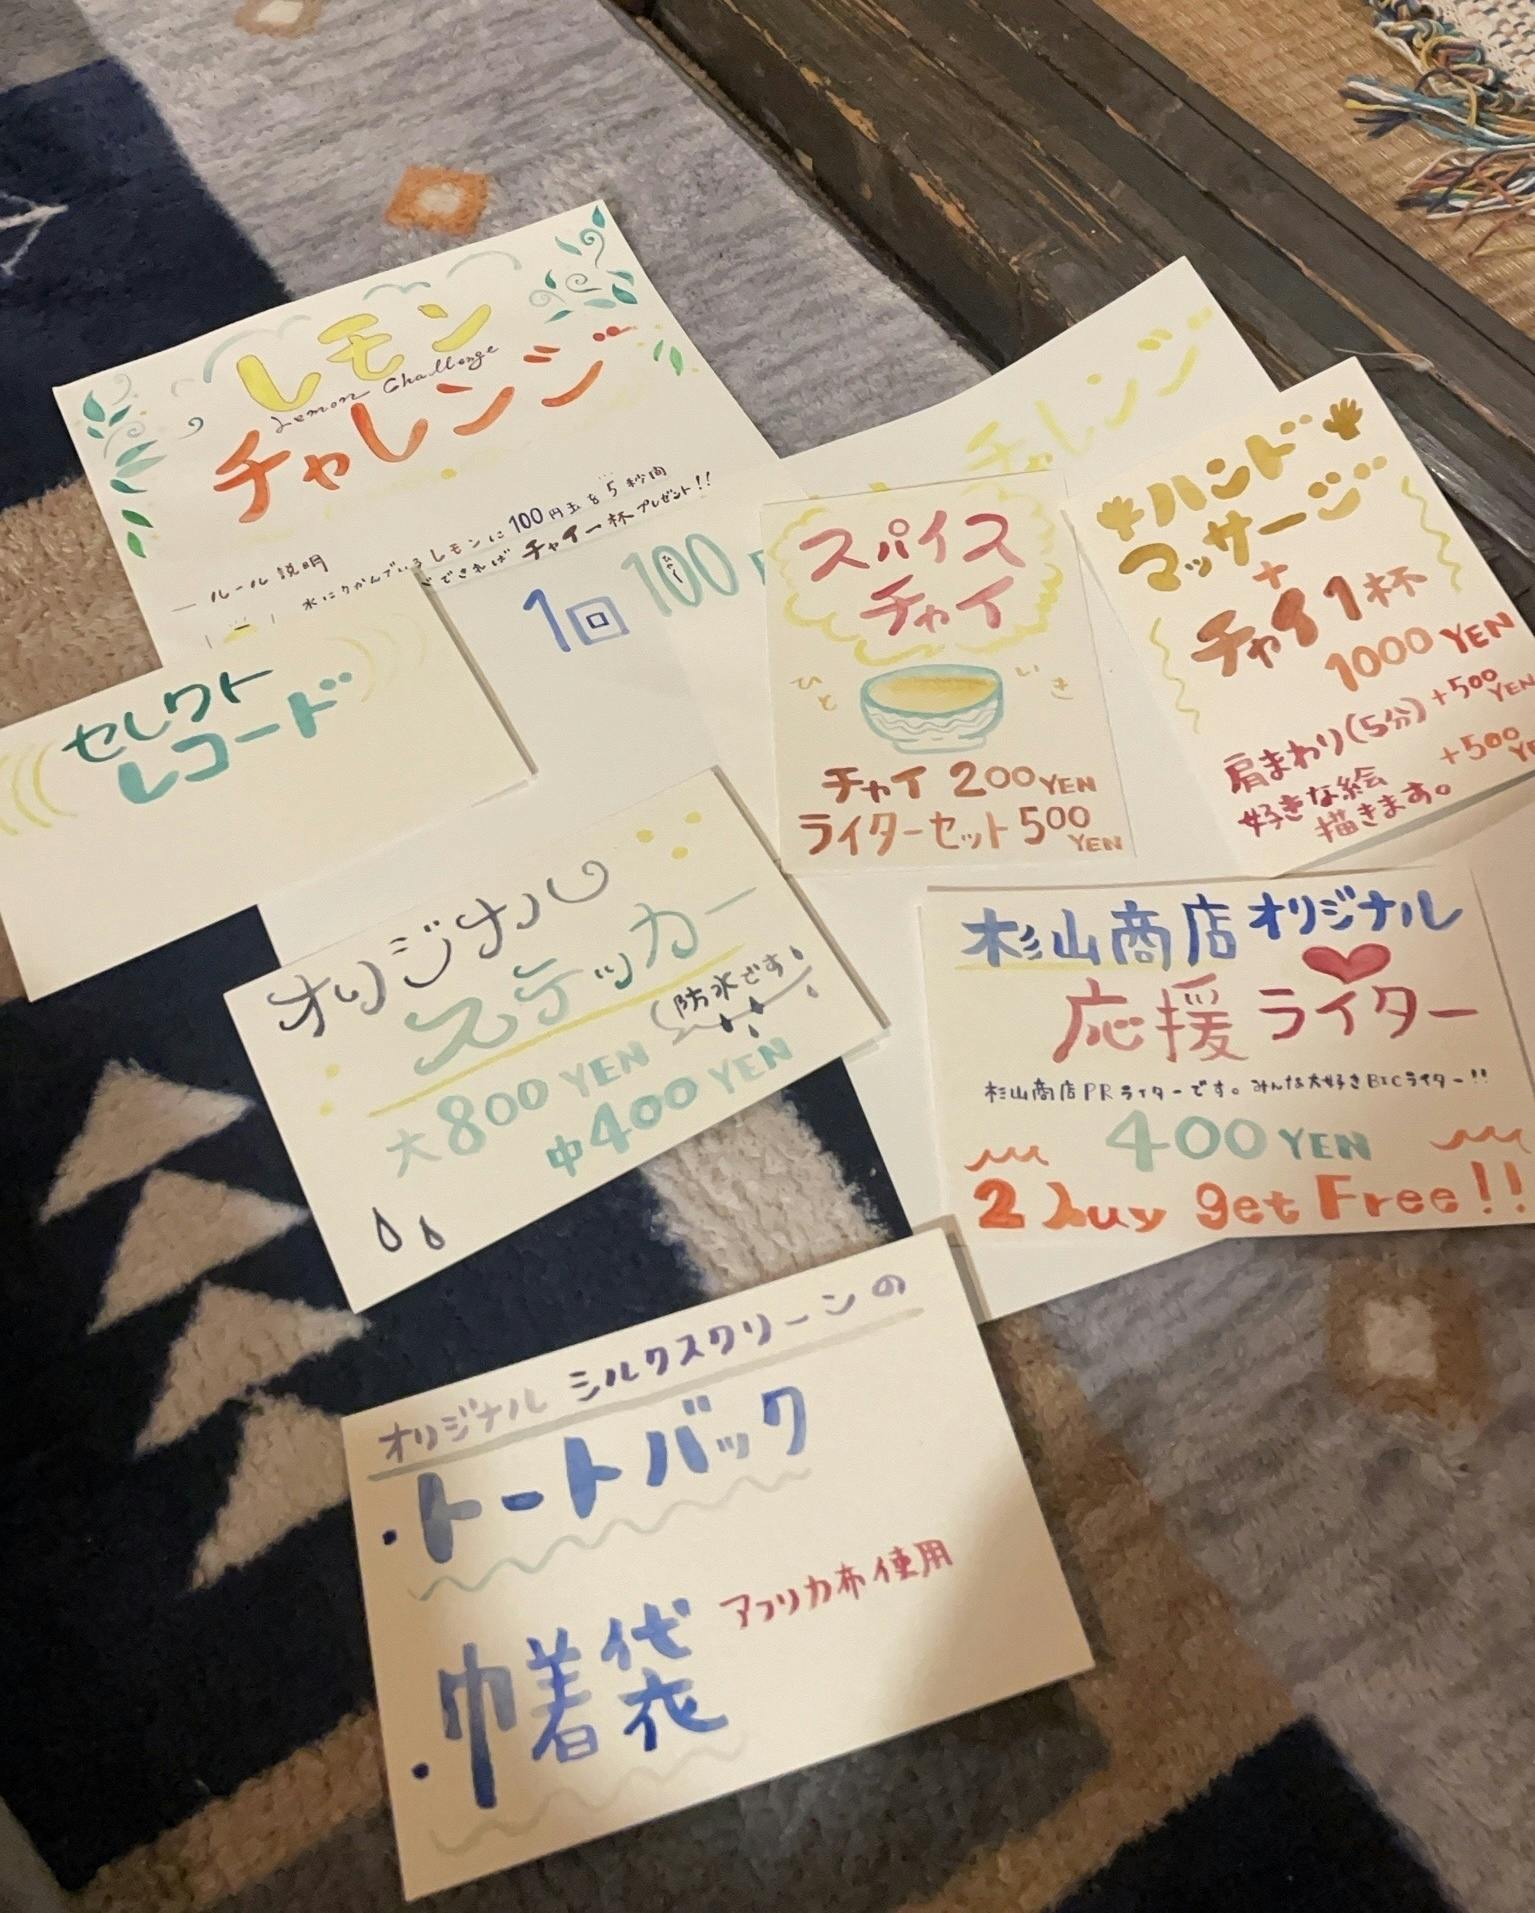 レモン
Lemon Challenge
チャレンジ
ルール説明
水にうかんでいるレモンに100円玉を5秒間
できればチャイ一杯プレゼント!!
1回100
チャレンジ
セレクト
レコード
スパイス
チャイ
ひと
いき
チャイ 200YEN
ライターセット 500YEN
ハンド
マッサージ
+
チャイ1杯
1000 YEN
肩まわり(5分)+500YEN
好きな絵 +500
描きます。
オリジナル
ステッカー
防水です。
大800 YEN
中400 YEN
杉山商店オリジナル
応援ライター
杉山商店PRライターです。みんな大好きBICライター!!
400 YEN
2 buy get Free!!
オリジナル シルクスクリーンの
・トートバック
アフリカ布使用
・巾着袋